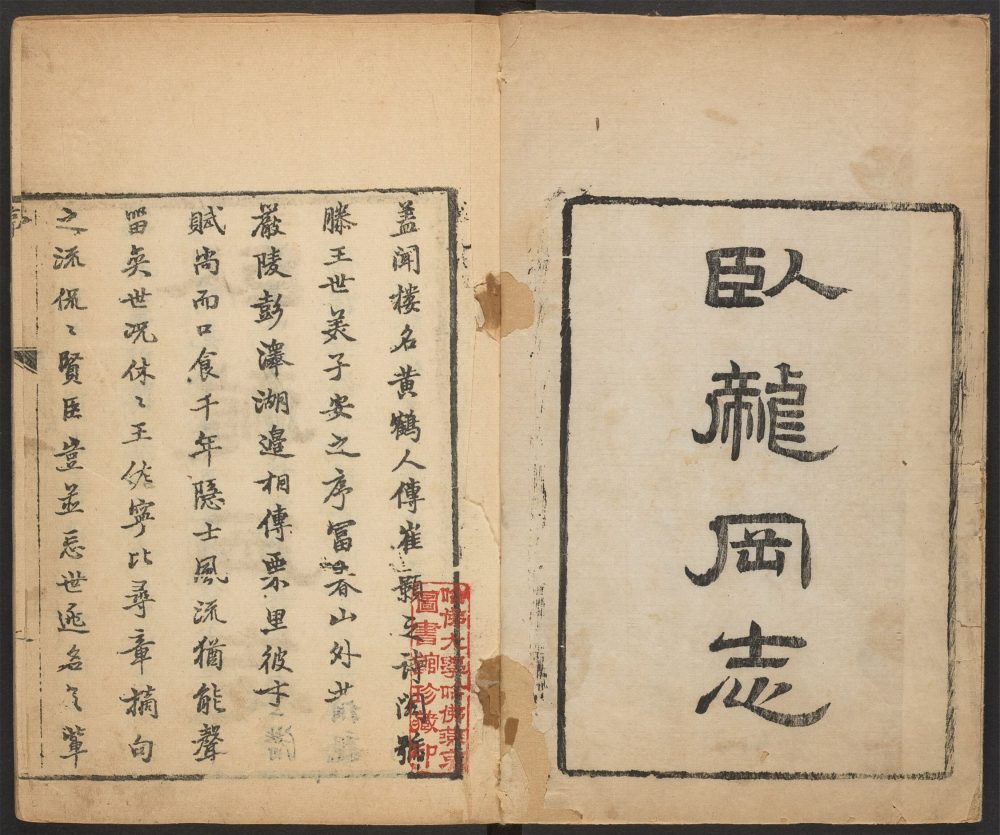 臥龍岡志
蓋聞樓名黄鶴人傳崔顥之詩閣號
滕王世羙子安之序冨春山外
嚴陵彭澤湖邉相傳栗里彼才
賦尚而口食千年隱士風流猶能聲
畱奕世况休〻王佐寧比尋章摘句
之流侃〻賢臣豈並忘世逃名之軰
哈佛大學哈佛燕京
圖書館珍藏印